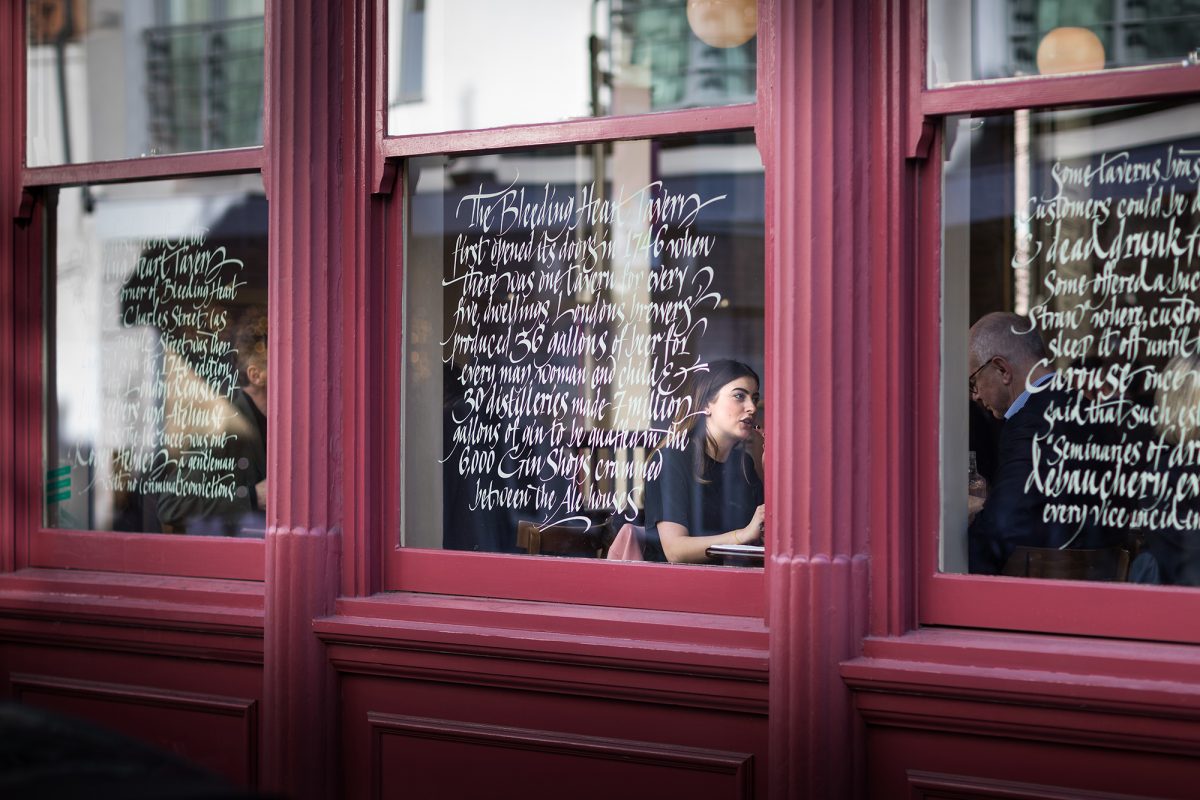 Heart Tavern
Corner of Bleeding Heart
Charles Street (as
Street was then
1746 edition
London
and Alehouse
licencee was one
a gentleman
with no criminal convictions.
The Bleeding Heart Tavern
first opened its doors in 1746 when
there was one tavern for every
five dwellings. Londons brewers
produced 36 gallons of beer for
every man, woman and child &
30 distilleries made 7 million
gallons of gin to be quaffed in the
6,000 Gin Shops crammed
between the Alehouses
Some taverns boas
Customers could be d
& dead drunk f
Some offered a buc
Straw where custom
sleep it off until t
Carouse once
said that such es
"Seminaries of dr
debauchery, ex
every vice inciden